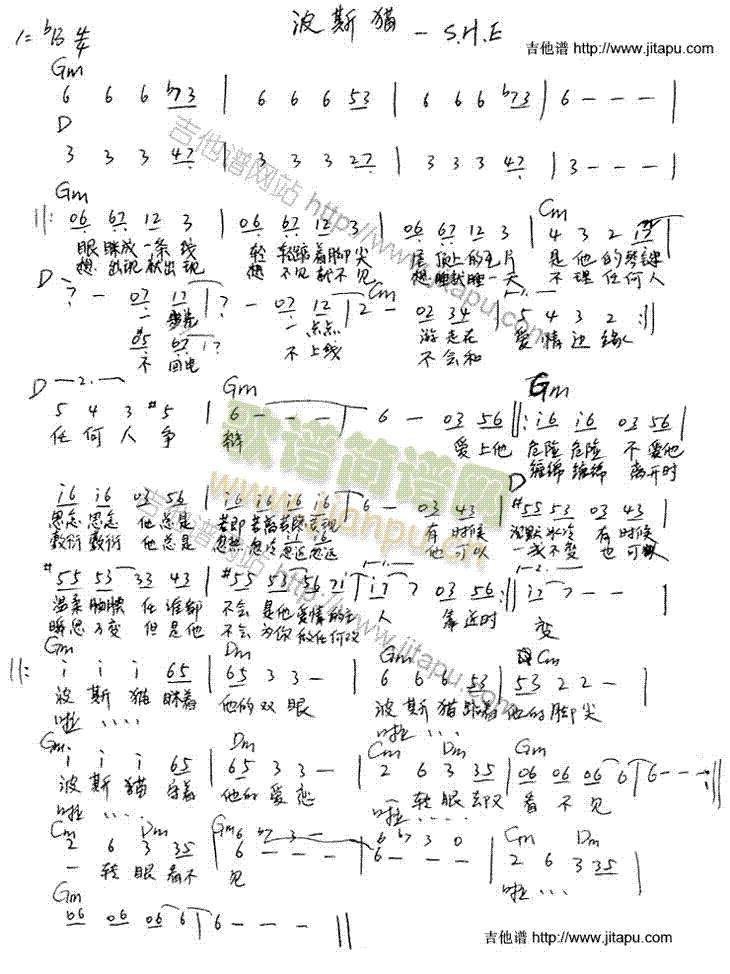 波斯猫 — S.H.E
1=ᵇB 4/4
吉他谱 http://www.jitapu.com
Gm
6 6 6 ᵇ7 3 | 6 6 6 5 3 | 6 6 6 ᵇ7 3 | 6 - - - |
D
3 3 3 4 7 | 3 3 3 2 7 | 3 3 3 4 7 | 3 - - - |
Gm Cm
||: 06 67 12 3 | 06 67 12 3 | 06 67 12 3 | 4 3 2 17 |
眼眯成一条线 轻轻踮着脚尖 是他的琴键
想出现就出现 想不见就不见 想睡就睡一天 不理任何人
D Cm
7 - 07 12 | 7 - 07 12 | 2 - 02 34 | 5 4 3 2 :||
一步步 一点点 游走在 爱情边缘
05 67 17
不回电 不上线 不会和
D -2. Gm Gm
5 4 3 #5 | 6 - - - | 6 - 03 56 ||: i6 i6 03 56 |
任何人争 辩 爱上他 危险危险 不爱他
缠绵缠绵 离开时
D
i6 i6 03 56 | i6 i6 i6 i6 | 6 - 03 43 | #55 53 03 43 |
思念思念 他总是 若即若离若隐若现 有时候 沉默冰冷 有时候
敷衍敷衍 他总是 忽热忽冷忽近忽远 他可以 一成不变 也可以
#55 53 33 43 | #55 53 56 7i | i7 7 03 56 :|| i7 7 - - |
温柔腼腆 任谁都 不会是他爱情的主 人 靠近时 变
瞬息万变 但是他 不会为你做任何改
Gm Dm Gm Cm
||: i i i 65 | 65 3 3 - | 6 6 6 53 | 53 2 2 - |
波斯猫眯着 他的双眼 波斯猫踮着 他的脚尖
啦···· 啦····
Gm Dm Cm Dm Gm
i i i 65 | 65 3 3 - | 2 6 3 35 | 06 06 06 6 | 6 - - - :||
波斯猫守着 他的爱恋 一转眼却又 看不见
啦···· 啦····
Cm Dm Gm Cm Dm
2 6 3 35 | 6 ᵇ7 3 - | 6 ᵇ7 3 0 | 2 6 3 35 |
6 - - - 6 - - -
一转眼看不 见 啦···
Gm
06 06 06 6 | 6 - - - ||
吉他谱 http://www.jitapu.com
歌谱简谱网
www.jianpu.cn
吉他谱网站 http://www.jitapu.com
吉他谱网站 http://www.jitapu.com